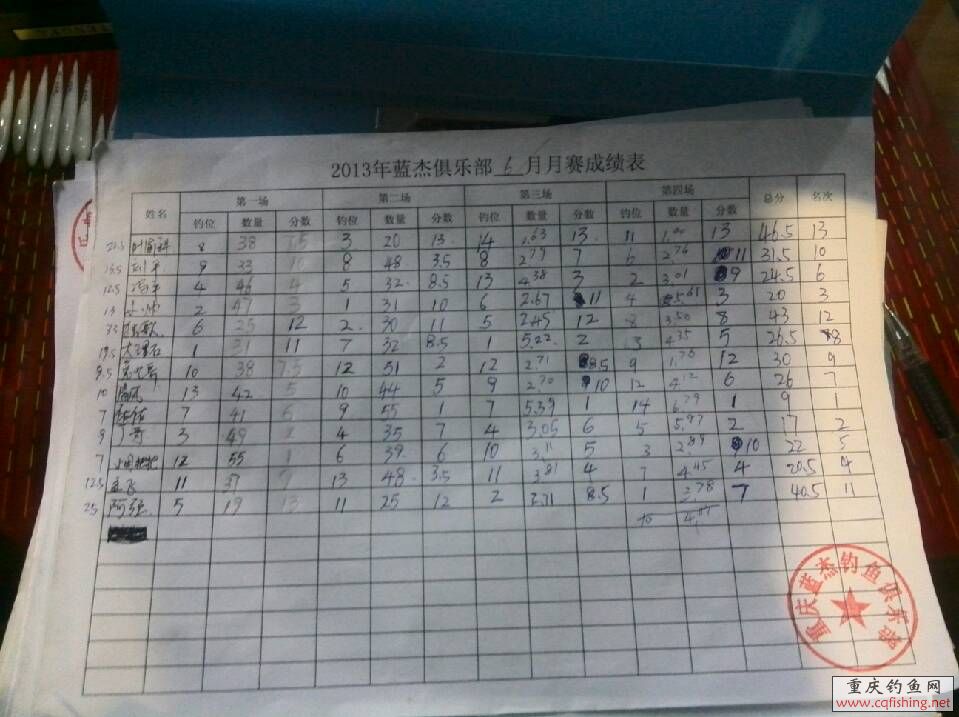 2013年蓝杰俱乐部 6 月月赛成绩表
姓名 第一场 第二场 第三场 第四场 总分 名次
钓位 数量 分数 钓位 数量 分数 钓位 数量 分数 钓位 数量 分数
8 38 7.5 3 20 13 14 2.63 13 11 13 46.5 13
9 33 10 8 48 3.5 8 2.79 7 6 2.76 11 31.5 10
4 46 4 5 32 8.5 13 4.38 3 2 3.01 9 24.5 6
2 47 3 1 31 10 6 2.67 11 4 5.61 3 20 3
6 25 12 2 30 11 5 2.45 12 8 3.50 8 43 12
大理石 1 31 11 7 32 8.5 1 5.22 2 13 4.35 5 26.5 8
10 38 7.5 12 51 2 12 2.71 8.5 9 1.76 12 30 9
10 13 42 5 10 44 5 9 2.70 10 12 4.12 6 26 7
7 7 41 6 9 55 1 7 5.39 1 14 6.79 1 9 1
9 丁哥 3 49 2 4 35 7 4 3.06 6 5 5.97 2 17 2
7 12 55 1 6 39 6 10 3.11 5 3 2.89 10 22 5
12.5 孟飞 11 37 9 13 48 3.5 11 3.81 4 7 4.45 4 20.5 4
25 阿强 5 19 13 11 25 12 2 2.71 8.5 1 3.78 7 40.5 11
重庆蓝杰钓鱼俱乐部
重庆钓鱼网
www.cqfishing.net